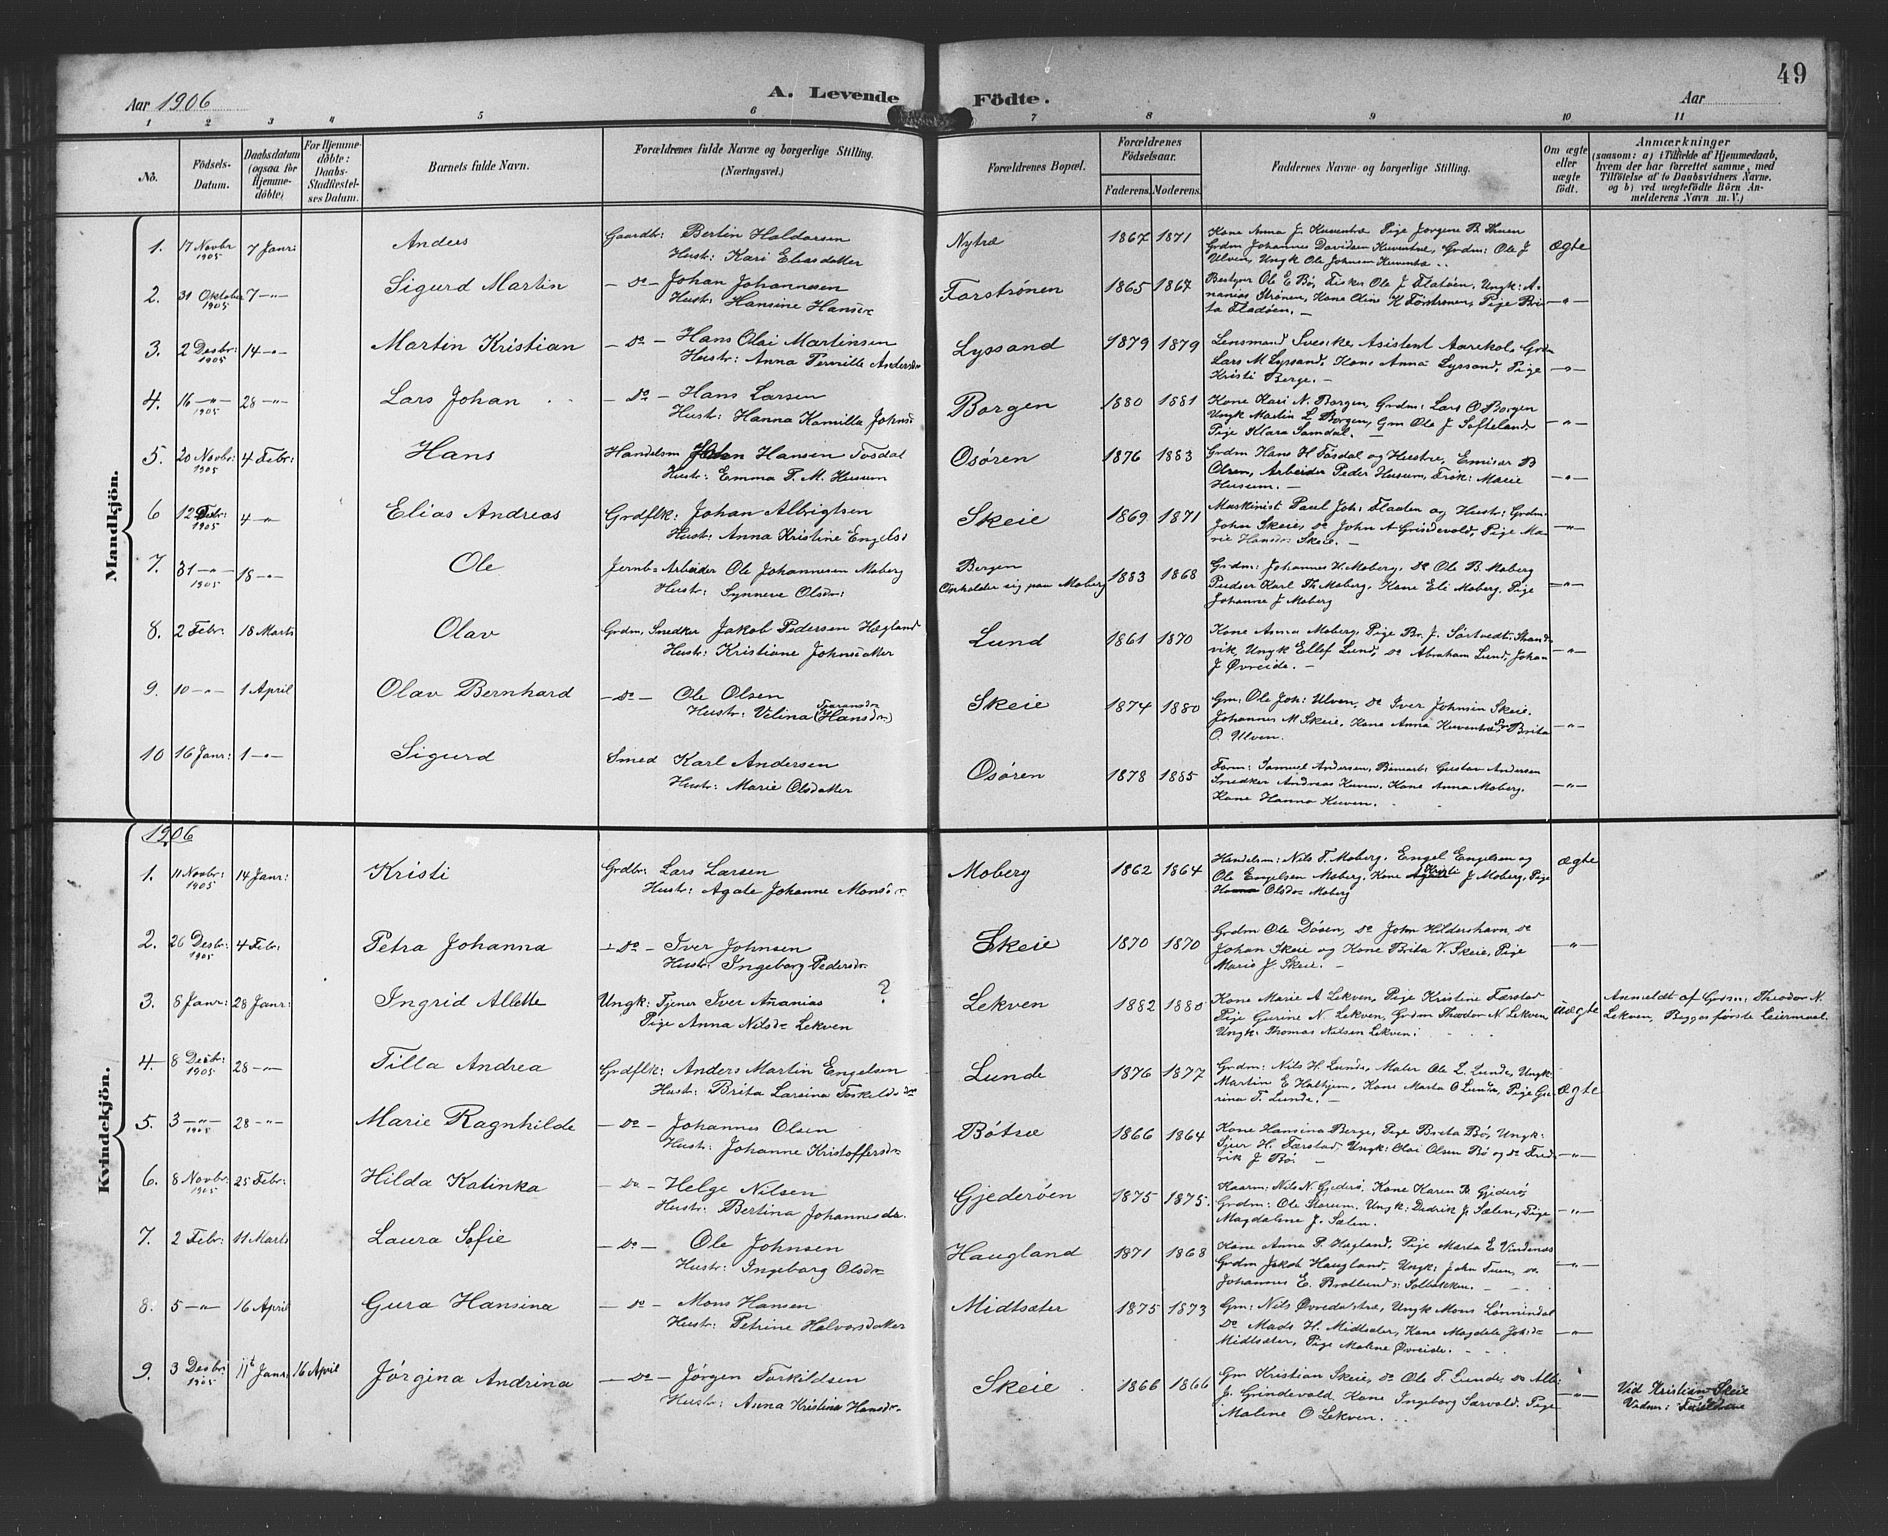 49
Aar 1906
A. Levende Födte.
Aar
1 2 3 4 5 6 7 8 9 10 11
No.
Födsels-Datum.
Daabsdatum (ogsaa for Hjemmedöbte)
For Hjemmedöbte: Daabs-Stadfæstelses Datum.
Barnets fulde Navn.
Forældrenes fulde Navne og borgerlige Stilling. (Næringsvei.)
Forældrenes Bopæl.
Forældrenes Födselsaar.
Faderens. Moderens.
Faddernes Navne og borgerlige Stilling.
Om ægte eller uægte födt.
Anmærkninger
(saasom: a) i Tilfælde af Hjemmedaab,
hvem der har forrettet samme, med
Tilföielse af to Daabsvidners Navne.
og b) ved uægtefödte Börn An-
melderens Navn m. V.)
Mandkjön.
1. 17 Novbr 1905 7 Janr: Anders Gaardb: Bertin Haldorsen
Hustr: Kari Eliasdatter
Nytræ 1867 1871 Kone Anna J. Kuventræ Pige Jørgine B. Tuen
Grdm Johannes Davidsen Kuventræ, Grdm: Ole J
Ulven, Ungk Ole Johnsen Kuventræ
ægte
2. 31 Oktober 1905 7 -"- Sigurd Martin - do - Johan Johannesen
Hustr: Hansine Hansdr
Forströnen 1865 1867 Bestyrer Ole E Bø, Fisker Ole J Flatöen, Ungk: A-
nanias Strönen, Kone Oline K Förströnen, Pige Bri-
ta Fladöen. -
-"-
3. 2 Desbr: 1905 14 -"- Martin Kristian - do - Hans Olai Martinsen
Hustr: Anna Pernille Andersdr
Lyssand 1879 1879 Lensmand Sveske, Asistent Aarekol, Grdm
Lars M Lyssand, Kone Anna Lyssand, Pige
Kristi Berge. -
-"-
4. 16 -"- 1905 28 -"- Lars Johan - do - Hans Larsen
Hustr: Hanna Kamilla Johns:
Borgen 1880 1881 Kone Kari N. Borgen, Grdm: Lars O Borgen
Ungk Martin L Borgen, Gm Ole J Softeland
Pige Klara Samdal. -
-"-
5. 20 Novbr: 1905 4 Febr: Hans Handelsm Hansen Tosdal
Hustr: Emma F. M. Husum
Osören 1876 1883 Grdm Hans H Tösdal og Hustru, Emisær B
Olsen, Arbeider Peder Husum, Frök: Marie
Husum. -
-"-
6 12 1905 4 -"- Elias Andreas Grdflk: Johan Albrigtsen
Hustr: Anna Kristine Engelsd
Skeie 1869 1871 Maskinist Paul Joh: Flaaten og Hustr: Grdm.
John Skeie, do John A Grindevold, Pige Ma-
rie Hansdr: Skeie. -
-"-
7. 31 -"- 1905 18 -"- Ole Jernb= Arbeider Ole Johannesen Moberg
Hustr: Synneve Olsdr:
Bergen
Opholder sig paa Moberg
1883 1868 Grdm: Johannes H. Moberg, do Ole B. Moberg
Pudser Karl Th. Moberg, Kone Eli Moberg, Pige
Johanne J Moberg
-"-
8. 2 Febr: 18 Marts Olav Grdm, Snedker Jakob Pedersen Hægland
Hustr: Kristiane Johnsdatter
Lund 1861 1870 Kone Anna Moberg, Pige Br. J. Sörtvedt-Strand-
vik, Ungk Ellef Lund, do Abraham Lund, Johan
J Øvreide. -
-"-
9. 10 -"- 1 April Olav Bernhard - do - Ole Olsen
Hustr: Velina (Hansdr)
Skeie 1874 1880 Gm: Ole Joh: Ulven, do Iver Johnsen Skeie.
Johannes M Skeie, Kone Anna Kuventræ, Brita
O. Ulven.
-"-
10 16 Janr: 1 -"- Sigurd Smed Karl Andersen
Hustr: Marie Olsdatter
Osören 1878 1885 Form: Samuel Andersen, Gustav Andersen
Snedker Andreas Kuven, Kone Anna Moberg,
Kone Hanna Kuven.
-"-
Kvindekjön.
1906
1. 11 Novbr: 1905 14 Janr: Kristi Grdbr: Lars Larsen
Hustr: Agate Johanne Monsdr
Moberg 1862 1864 Handelsm: Nils T. Moberg, Engel Engelsen og
Ole Engelsen Moberg, Kone Kristi J Moberg, Pige
Olsdr Moberg
ægte
2. 26 Desbr: 1905 4 Febr: Petra Johanna - do - Iver Johnsen
Hustr: Ingeborg Pedersdr
Skeie 1870 1870 Grdm Ole Døsen, do John Hildershavn, do
Johan Skeie og Kone Brita V. Skeie, Pige
Marie J. Skeie. -
-"-
3. 8 Janr: 28 Janr: Ingrid Alette Ungk: Tjener Iver Ananias ?
Pige Anna Nilsdr Lekven
Lekven 1882 1880 Kone Marie A Lekven, Pige Kristine Færstad
Pige Gurine N. Lekven, Grdm Theodor N. Lekven
Ungk: Thomas Nilsen Lekven:
uægte
Anmeldt af Grdm: Theodor N.
Lekven, Begges første Leiermaal.
4. 8 Desbr: 1905 28 -"- Tilla Andrea Grdflk: Anders Martin Engelsen
Hustr: Brita Larsina Torkildsdr
Lunde 1876 1877 Grdm: Nils H Lunde, Maler Ole L. Lunde, Ungk
Martin E Hatvjem, Kone Marta O Lunde, Pige Gu-
rina T. Lunde. -
ægte
5. 3 -"- 1905 28 -"- Marie Ragnhilde - do - Johannes Olsen
Hustr: Johanne Kristoffersdr
Bötræ 1866 1864 Kone Hansina Berge, Pige Brita Bø, Ungk:
Sjur H. Færstad, Ungk: Olai Olsen Bø og do Fred-
rik J Bø. -
-"-
6. 8 Novbr: 1905 25 Febr: Hilda Katinka - do - Helge Nilsen
Hustr: Bertina Johannesdr.
Gjederöen 1875 1875. Kaarm: Nils N. Gjederö, Kone Karen B. Gjederö,
Grdm: Ole Storum, Ungk: Dedrik J. Sælen, Pige
Magdalene J. Sælen.
-"-
7. 2 Febr: 11 Marts Laura Sofie - do - Ole Johnsen
Hustr: Ingeborg Olsdr
Haugland 1871 1868 Kone Anna P. Hagland, Pige Marta E Vindenes
Grdm Jakob Haugland, Ungk: John Tuen, do
Johannes E. Brotlund: Solbakken.
-"-
8. 5 -"- 16 April Gura Hansina - do - Mons Hansen
Hustr: Petrine Halvorsdatter
Midtsæter 1875 1873 Gm: Nils Øvredalstræ, Ungk Mons Lönnindal
Do Mads H. Midtsæter, Kone Magdela Johsdr
Midtsæter, Pige Maline Øvreide.
-"-
9. 3 Desbr: 1905 11t Janr 16 April Jörgina Andrina - do - Jörgen Torkildsen
Hustr: Anna Kristina Hansdr
Skeie 1866 1866 Gm Kristian Skeie, do Ole T. Lunde, do Alb:
J. Grindevold, Kone Ingeborg Sørvold, Pige
Maline O Lekven.
-"-
Vid Kristian Skeie
Vidne: